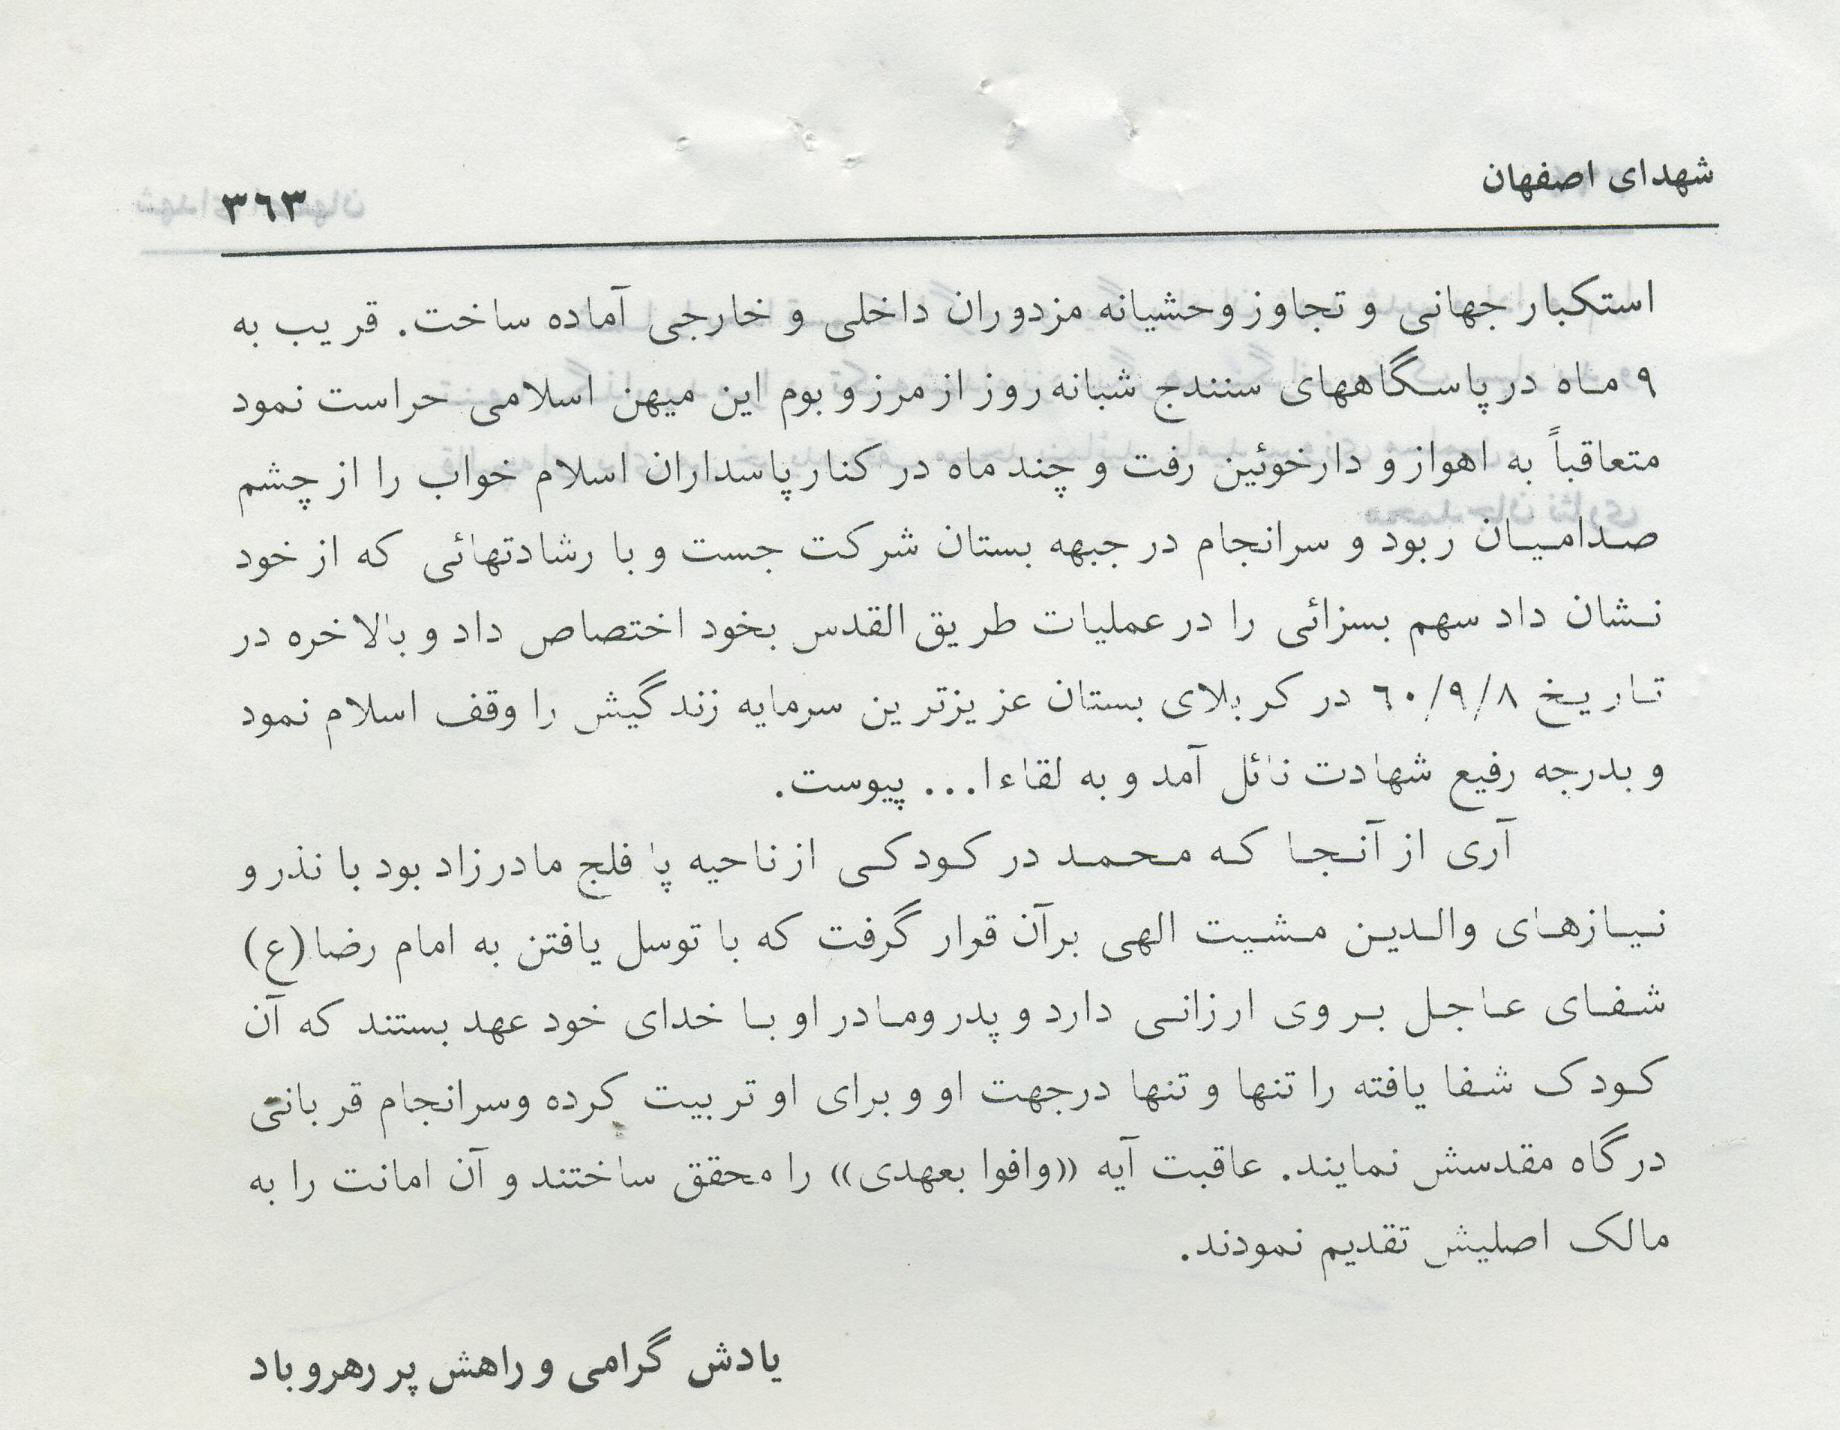 شهدای اصفهان
٣٦٣
استکبار جهانی و تجاوز وحشیانه مزدوران داخلی و خارجی آماده ساخت. قریب به
٩ ماه در پاسگاههای سنندج شبانه روز از مرز و بوم این میهن اسلامی حراست نمود
متعاقباً به اهواز و دارخوئین رفت و چند ماه در کنار پاسداران اسلام خواب را از چشم
صدامیان ربود و سرانجام در جبهه بستان شرکت جست و با رشادتهائی که از خود
نشان داد سهم بسزائی را در عملیات طریق القدس بخود اختصاص داد و بالاخره در
تاریخ ٦٠/٩/٨ در کربلای بستان عزیزترین سرمایه زندگیش را وقف اسلام نمود
و بدرجه رفیع شهادت نائل آمد و به لقاء ا... پیوست.
آری از آنجا که محمد در کودکی از ناحیه پا فلج مادرزاد بود با نذر و
نیازهای والدین مشیت الهی برآن قرار گرفت که با توسل یافتن به امام رضا (ع)
شفای عاجل بر وی ارزانی دارد و پدر ومادر او با خدای خود عهد بستند که آن
کودک شفا یافته را تنها و تنها درجهت او و برای او تربیت کرده وسرانجام قربانی
درگاه مقدسش نمایند. عاقبت آیه «وافوا بعهدی» را محقق ساختند و آن امانت را به
مالک اصلیش تقدیم نمودند.
یادش گرامی و راهش پر رهرو باد